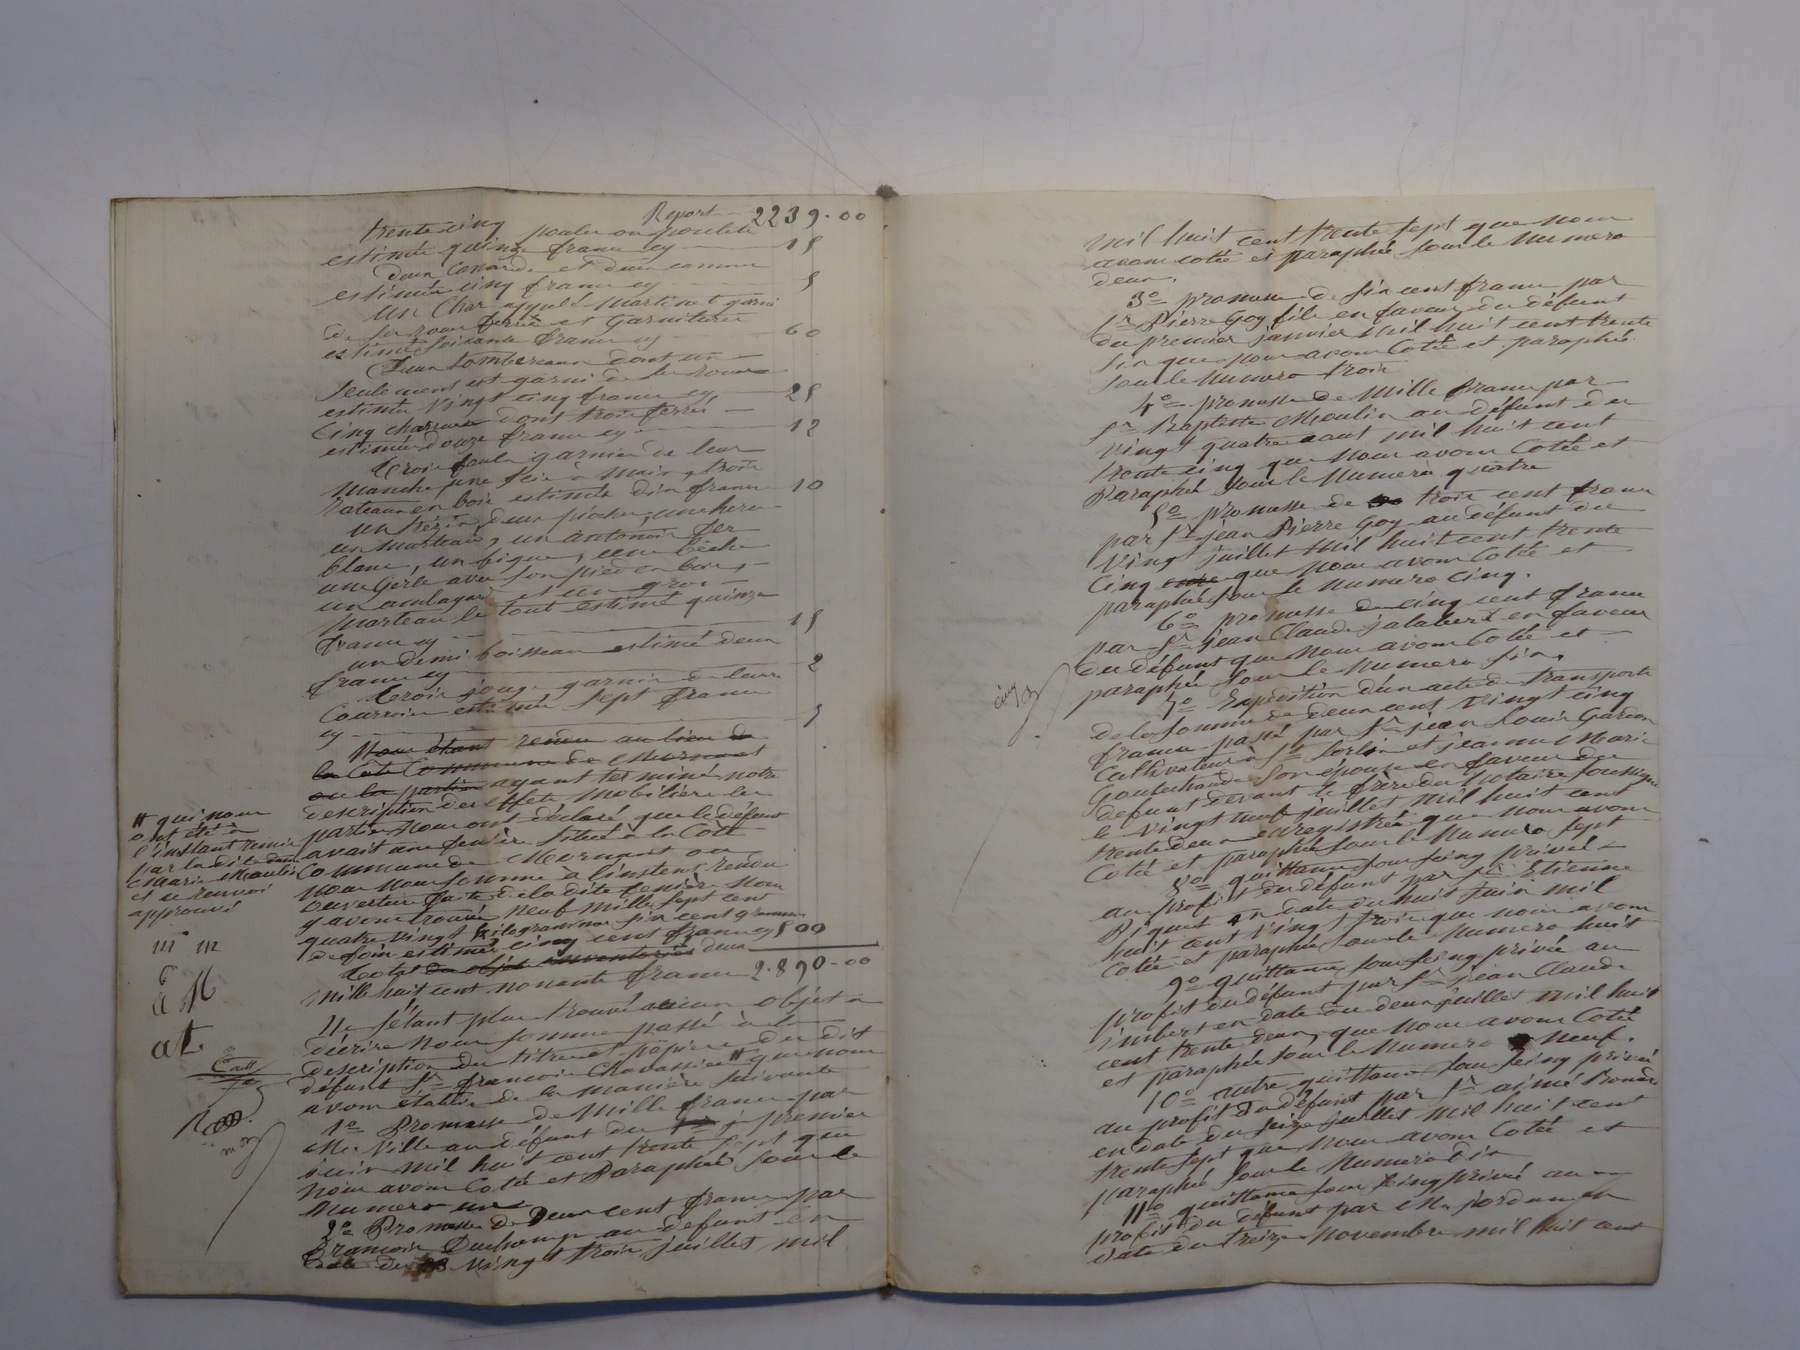 Report 2239-00
trente cinq poules ou poulets
estimés quinze francs cy 15
Deux canards et deux cannes
estimés cinq francs cy 5
un Char appellé Martinet garni
de ses roues ferrés et Garnitures
estimé Soixante francs cy 60
Deux tombereaux dont un
Seulement est garni de Ses roues
estimés Vingt cinq francs cy 25
Cinq charrues dont trois ferrés
estimés douze francs cy 12
trois faulx garnies de leur
manche, une scie à main, trois
Rateaux en bois estimés dix francs 10
un marteau, un antonoir fer
blanc, un bigue, une bêche
une Gerle avec son pied en bois,
et un gros
marteau le tout estimé quinze
francs cy 15
un demi boisseau estimé deux
francs cy 2
trois jougs garnis de leurs
Courroies estimés Sept francs
cy 7
Nous étant rendu au lieu de
la Côte Commune de Mornant
ou les parties ayant terminé notre
description des effets mobiliers les
parties Nous ont déclaré que le défunt
avait une fenière située à la Côte
Commune de Mornant ou
nous nous sommes à l'instant rendu
ouverture faite de la dite fenière nous
y avons trouvé neuf mille sept cent
quatre vingt kilogrammes six cent grammes
de foin estimé cinq cent francs cy 500
Total des objets inventoriés deux
mille huit cent nonante francs 2.890-00
Ne s'étant plus trouvé aucun objet à
décrire nous sommes passé à la
description des titres et papiers du dit
défunt Sr françois Chavassieux # que nous
avons établie de la manière suivante
1o Promesse de Mille francs par
Mr. Ville au défunt du premier
juin mil huit cent trente sept que
nous avons Coté et Paraphé sous le
Numero un
2o Promesse de Deux cent francs par
françois Duchamp au défunt en
Date du vingt trois juillet mil
# qui nous
ont été à
l'instant remis
par la dite dame
Marie Moulin
et ce renvoi
approuvé
m m
a M
at
mil huit cent trente sept que nous
avons cotée et paraphée sous le Numero
deux.
3o promesse de six cent francs par
Sr Pierre Goy fils en faveur du défunt
du premier janvier mil huit cent trente
six que nous avons Cotée et paraphée
sous le Numero trois
4o promesse de Mille francs par
Sr Baptiste Moulin au défunt du
vingt quatre aout mil huit cent
trente cinq que nous avons Cotée et
Paraphée sous le Numero quatre
5o promesse de trois cent francs
par Sr jean Pierre Goy au défunt du
vingt juillet mil huit cent trente
cinq que nous avons Cotée et
paraphée sous le numero cinq.
6o promesse de cinq cent francs
par Sr jean Claude jalabert en faveur
du défunt que nous avons Cotée et
paraphée sous le Numero six.
7o Expédition d'un acte de transport
de la somme de deux cent vingt cinq
francs passé par Sr jean Louis Gardon
Cultivateur à St Sorlin et jeanne Marie
son épouse en faveur du
défunt devant le père du Notaire soussigné
le vingt neuf juillet mil huit cent
trente deux enregistrée que nous avons
Coté et paraphé sous le Numero sept
8o quittance sous seing privé
au profit du défunt par Sr Etienne
Piquet en date du huit juin mil
huit cent vingt trois que nous avons
Cotée et paraphée sous le numero huit
9o quittance sous seing privée au
profit du défunt par Sr jean Claude
imbert en date du deux juillet mil huit
cent trente deux, que nous avons Cotée
et paraphée sous le Numero neuf.
10o autre quittance sous seing privée
au profit du défunt par Sr aimé
en date du seize juillet mil huit cent
trente sept que nous avons Cotée et
paraphée sous le Numero dix
11o quittance sous seing privé au
profit du défunt par Mr jordan en
date du treize Novembre mil huit cent